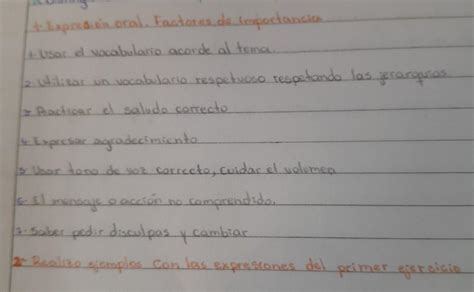 + Expresión oral. Factores de importancia
1. Usar el vocabulario acorde al tema.
2. Utilizar un vocabulario respetuoso respetando las jerarquias
3- Practicar el saludo correcto
4- Expresar agradecimiento
5 Usar tono de voz correcto, cuidar el volomen
6- El mensaje o acción no comprendido.
7- Saber pedir disculpas y cambiar
2- Realizo ejemplos con las expresiones del primer ejercicio